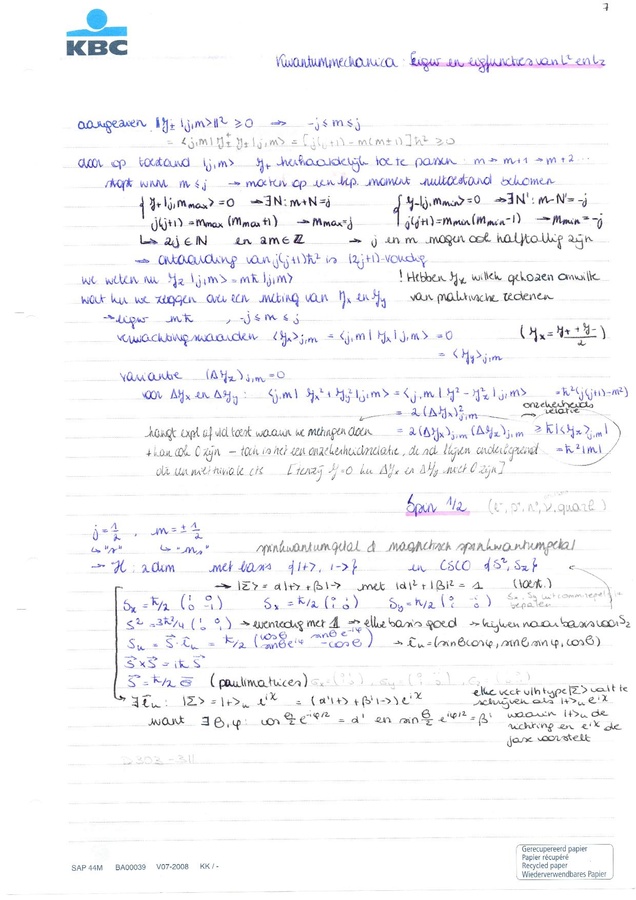 7
KBC
Kwantummechanica: Eigw en eigfuncties van L² en Lz
aangezien ‖J± |j,m>‖² ≥ 0 → -j ≤ m ≤ j
= <j,m| J±† J± |j,m> = [j(j+1) - m(m±1)]ħ² ≥ 0
door op toestand |j,m> J+ herhaaldelijk toe te passen: m → m+1 → m+2 ...
stopt wnr m ≤ j → moeten op een bep. moment nultoestand bekomen
{ J+ |j,m max> = 0 → ∃N: m+N = j { J- |j,m min> = 0 → ∃N': m-N' = -j
j(j+1) = m max (m max +1) → m max = j j(j+1) = m min (m min -1) → m min = -j
↳ 2j ∈ ℕ en 2m ∈ ℤ → j en m mogen ook halftallig zijn
→ ontaarding van j(j+1)ħ² is (2j+1)-voudig
we weten nu Jz |j,m> = mħ |j,m> ! Hebben Jz willek gekozen omwille
wat kn we zeggen over een meting van Jx en Jy van praktische redenen
→ eigw mħ , -j ≤ m ≤ j
verwachtingswaarden <Jx>j,m = <j,m| Jx |j,m> = 0 (Jx = J+ + J- / 2)
= <Jy>j,m
variantie (ΔJz)j,m = 0
voor ΔJx en ΔJy: <j,m| Jx² + Jy² |j,m> = <j,m| J² - Jz² |j,m> = ħ²(j(j+1) - m²)
= 2(ΔJx)²j,m onzekerheids relatie
hangt expl af vd toest waarin we metingen doen = 2(ΔJx)j,m (ΔJy)j,m ≥ ħ |<Jz>j,m|
+ kan ook 0 zijn - toch is het een onzekerheidsrelatie, = ħ²|m|
[tenzij J=0 kn ΔJx en ΔJy niet 0 zijn]
Spin 1/2 (e⁻, p⁺, n°, ν, quark)
j = 1/2 , m = ± 1/2
↳ "s" ↳ "ms" spinkwantumgetal & magnetisch spinkwantumgetal
→ ℋ: 2 dim met basis {|+>, |->} en CSCO {S², Sz}
→ |Σ> = α|+> + β|-> met |α|² + |β|² = 1 (toest.)
Sz = ħ/2 (1 0 0 -1) Sx = ħ/2 (0 1 1 0) Sy = ħ/2 (0 -i i 0)
S² = 3ħ²/4 (1 0 0 1) → evenredig met 𝟙 → elke basis goed → kijken naar basis voor Sz
Su = S⃗ · e⃗u = ħ/2 (cosθ sinθ e^-iφ sinθ e^iφ -cosθ) → e⃗u = (sinθ cosφ, sinθ sinφ, cosθ)
S⃗ × S⃗ = iħ S⃗
S⃗ = ħ/2 σ⃗ (paulimatrices)
↳ ∃ e⃗u: |Σ> = |+>u e^iχ = (α'|+> + β'|->) e^iχ elke vect vh type |Σ> valt te schrijven als |+>u e^iχ
want ∃ θ, φ: cos θ/2 e^-iφ/2 = α' en sin θ/2 e^iφ/2 = β' waarin |+>u de
richting en e^iχ de
fase voorstelt
D303-311
SAP 44M BA00039 V07-2008 KK / -
Gerecupereerd papier
Papier récupéré
Recycled paper
Wiederverwendbares Papier